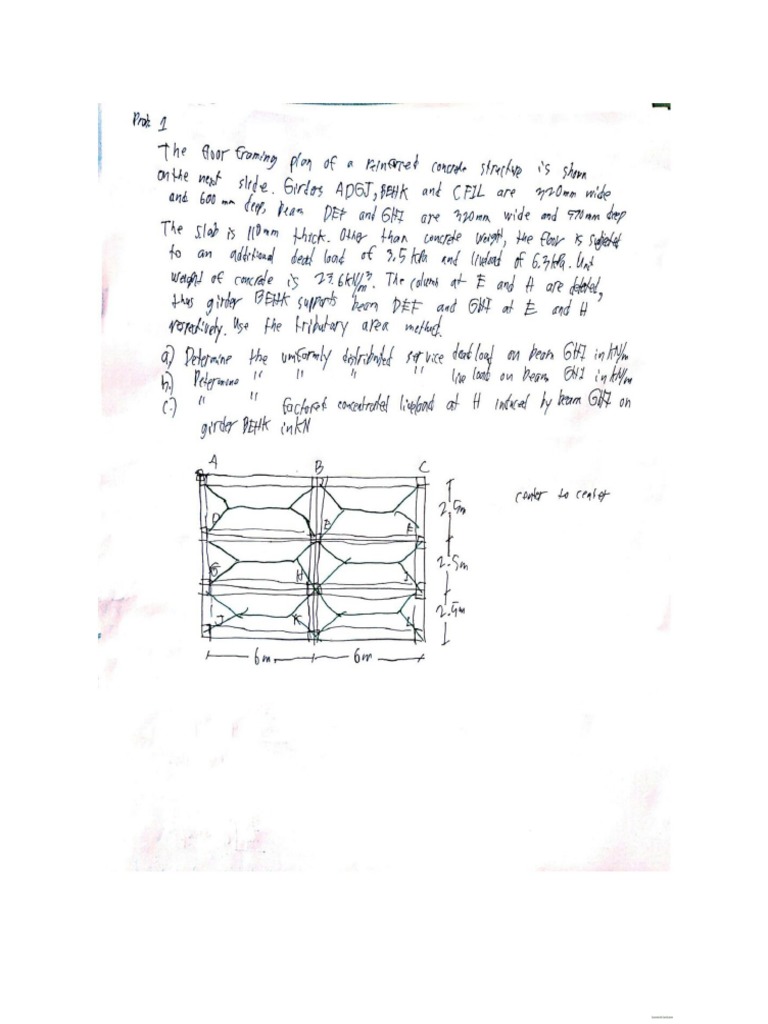 Prob 1
The floor framing plan of a reinforced concrete structure is shown
on the next slide. Girders ADGJ, BEHK and CFIL are 320mm wide
and 600 mm deep, beam DEF and GHI are 320mm wide and 570mm deep
The slab is 110mm thick. Other than concrete weight, the floor is subjected
to an additional dead load of 3.5 kPa and liveload of 6.3 kPa. Unit
weight of concrete is 23.6 kN/m³. The column at E and H are deleted,
thus girder BEHK supports beam DEF and GHI at E and H
respectively. Use the tributary area method.
a.) Determine the uniformly distributed service dead load on beam GHI in kN/m
b.) Determine " " " " live load on beam GHI in kN/m
c.) " " factored concentrated liveload at H induced by beam GHI on
girder BEHK in kN
A B C
2.5m center to center
D B E
2.5m
G H I
2.5m
J K L
6m 6m